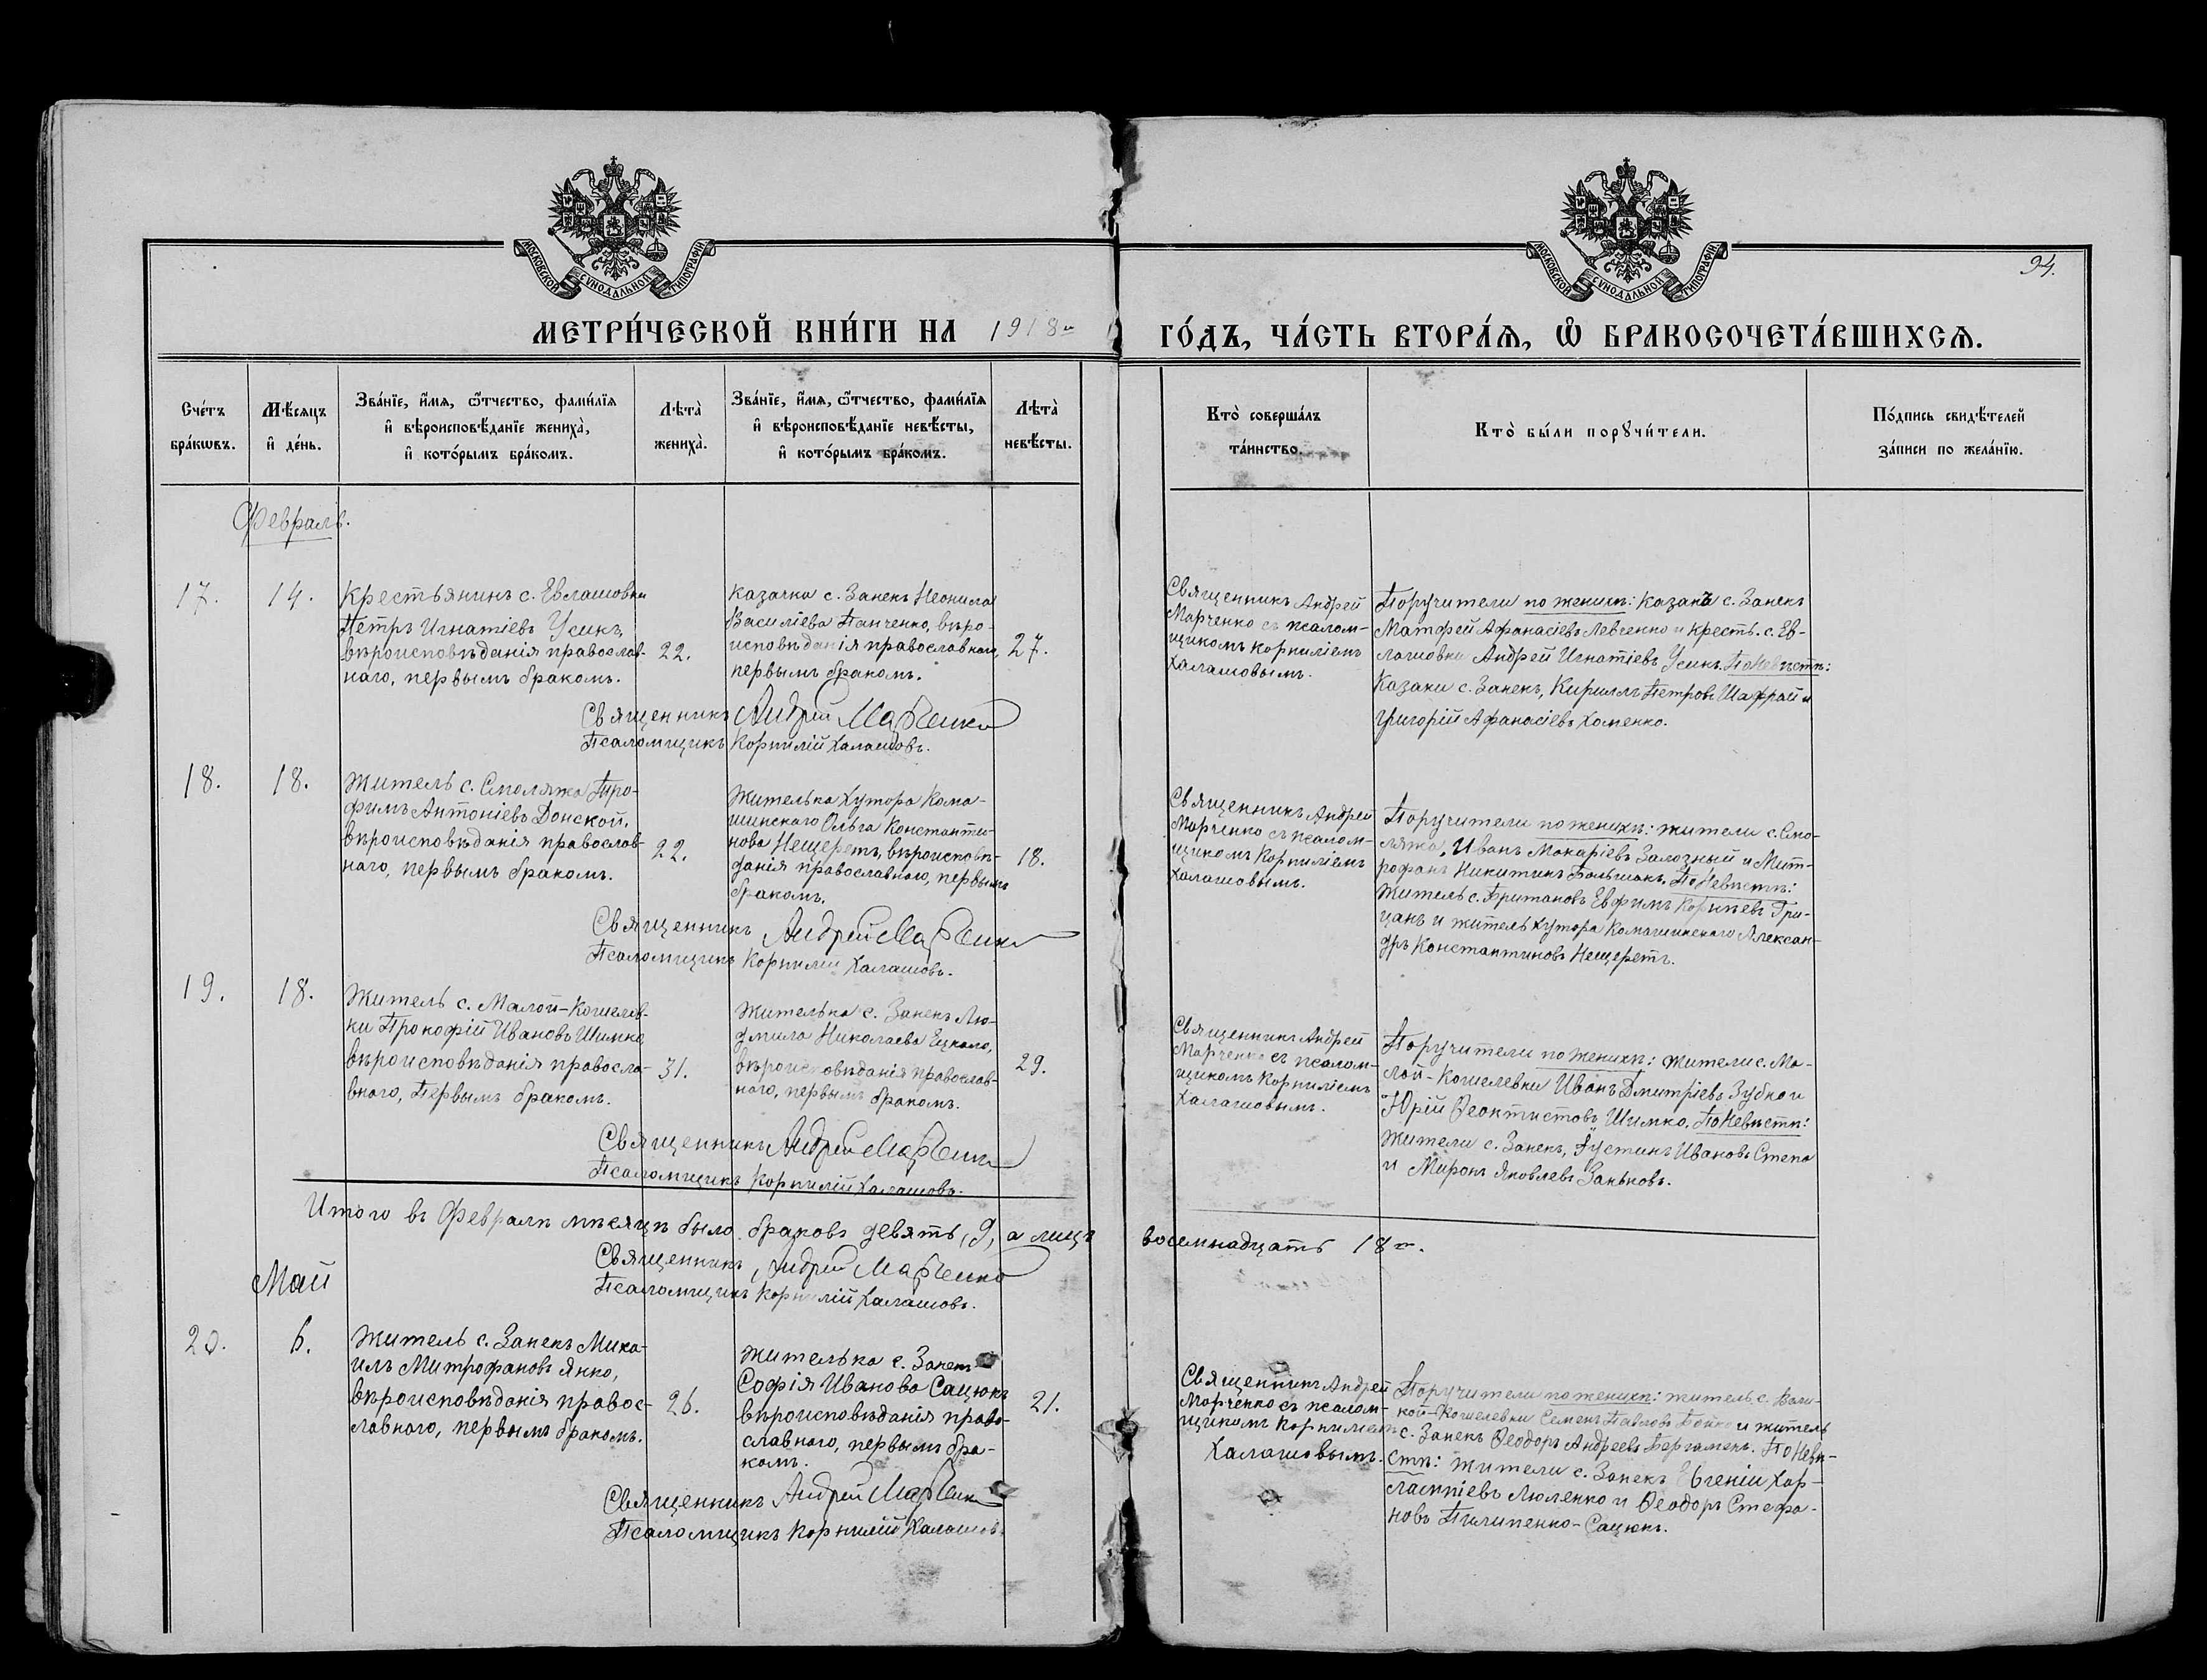 МОСКОВСКОЙ СУНОДАЛЬНОЙ ТИПОГРАФІИ
МОСКОВСКОЙ СУНОДАЛЬНОЙ ТИПОГРАФІИ
94.
МЕТРИ́ЧЕСКОЙ КНИ́ГИ НА 1918 г. ГО́ДЪ, ЧА́СТЬ ВТОРА́Я, Ѡ БРАКОСОЧЕТА́ВШИХСЯ.
Сче́тъ
бра́кωвъ.
Мѣ́сяцъ
и҆ де́нь.
Зва́нїе, и҆́мя, ѻ҆́тчество, фами́лїя
и҆ вѣроисповѣ́данїе жениха̀,
и҆ кото́рымъ бра́комъ.
Лѣта̀
жениха̀.
Зва́нїе, и҆́мя, ѻ҆́тчество, фами́лїя
и҆ вѣроисповѣ́данїе невѣ́сты,
и҆ кото́рымъ бра́комъ.
Лѣта̀
невѣ́сты.
Кто̀ соверша́лъ
та́инство.
Кто̀ бы́ли порꙋчи́тели.
По́дпись свидѣ́телей
за́писи по жела́нїю.
Февраль.
17.
14.
Крестьянинъ с. Евлашовки
Петръ Игнатіевъ Усикъ,
вѣроисповѣданія православ-
наго, первымъ бракомъ.
22.
казачка с. Занекъ Неонила
Василіева Панченко, вѣро-
исповѣданія православнаго,
первымъ бракомъ.
27.
Священникъ Андрей
Марченко съ псалом-
щикомъ Корниліемъ
Халашовымъ.
Поручители по женихѣ: казакъ с. Занекъ
Матфей Афанасіевъ Левченко и крестъ. с. Ев-
лашовки Андрей Игнатіевъ Усикъ. По Невѣстѣ:
Казаки с. Занекъ, Кириллъ Петровъ Шафрай и
Григорій Афанасіевъ Хоменко.
Священникъ Андрей Марченко
Псаломщикъ Корнилій Халашовъ.
18.
18.
Житель с. Смоляжа Тро-
фимъ Антоніевъ Донской,
вѣроисповѣданія православ-
наго, первымъ бракомъ.
22.
Жителька хутора Кома-
шинскаго Ольга Константи-
нова Нещеретъ, вѣроисповѣ-
данія православнаго, первымъ
бракомъ.
18.
Священникъ Андрей
Марченко съ псалом-
щикомъ Корниліемъ
Халашовымъ.
Поручители по женихѣ: жители с. Смо-
ляжа, Иванъ Макаріевъ Залозный и Мит-
рофанъ Никитинъ Большакъ. По Невѣстѣ:
Житель с. Британовъ Евфимъ Гри-
цанъ и житель хутора Комашинскаго Алексан-
дръ Константиновъ Нещеретъ.
Священникъ Андрей Марченко
Псаломщикъ Корнилій Халашовъ.
19.
18.
Житель с. Малой-Кошелев-
ки Прокофій Ивановъ Шимко
вѣроисповѣданія правосла-
внаго, Первымъ бракомъ.
31.
Жителька с. Занекъ Лю-
дмила Николаева Ецкало,
вѣроисповѣданія православ-
наго, первымъ бракомъ.
29.
Священникъ Андрей
Марченко съ псалом-
щикомъ Корниліемъ
Халашовымъ.
Поручители по женихѣ: жители с. Ма-
лой-Кошелевки Иванъ Дмитріевъ Зубко и
Юрій Ѳеоктистовъ Шимко. По Невѣстѣ:
Жители с. Занекъ, Густинъ Ивановъ Степа
и Миронъ Яковлевъ Заньковъ.
Священникъ Андрей Марченко
Псаломщикъ Корнилій Халашовъ.
Итого въ Февралѣ мѣсяцѣ было браковъ девять, 9, а лицъ восемнадцать 18.
Священникъ, Андрей Марченко
Псаломщикъ Корнилій Халашовъ.
Май
20.
6.
Житель с. Занекъ Миха-
илъ Митрофановъ Янко,
вѣроисповѣданія правос-
лавнаго, первымъ бракомъ.
26.
Жителька с. Занекъ
Софія Иванова Сацюкъ
вѣроисповѣданія право-
славнаго, первымъ бра-
комъ.
21.
Священникъ Андрей
Марченко съ псалом-
щикомъ Корниліемъ
Халашовымъ.
Поручители по женихѣ: житель с. Вели-
кой-Кошелевки Семенъ Павловъ Бойко и житель
с. Занекъ Ѳеодоръ Андреевъ Пергаменъ. По Невѣ-
стѣ: жители с. Занекъ Евгеній Хар-
лампіевъ Люленко и Ѳеодоръ Стефа-
новъ Пилипенко-Сацюкъ.
Священникъ Андрей Марченко
Псаломщикъ Корнилій Халашовъ